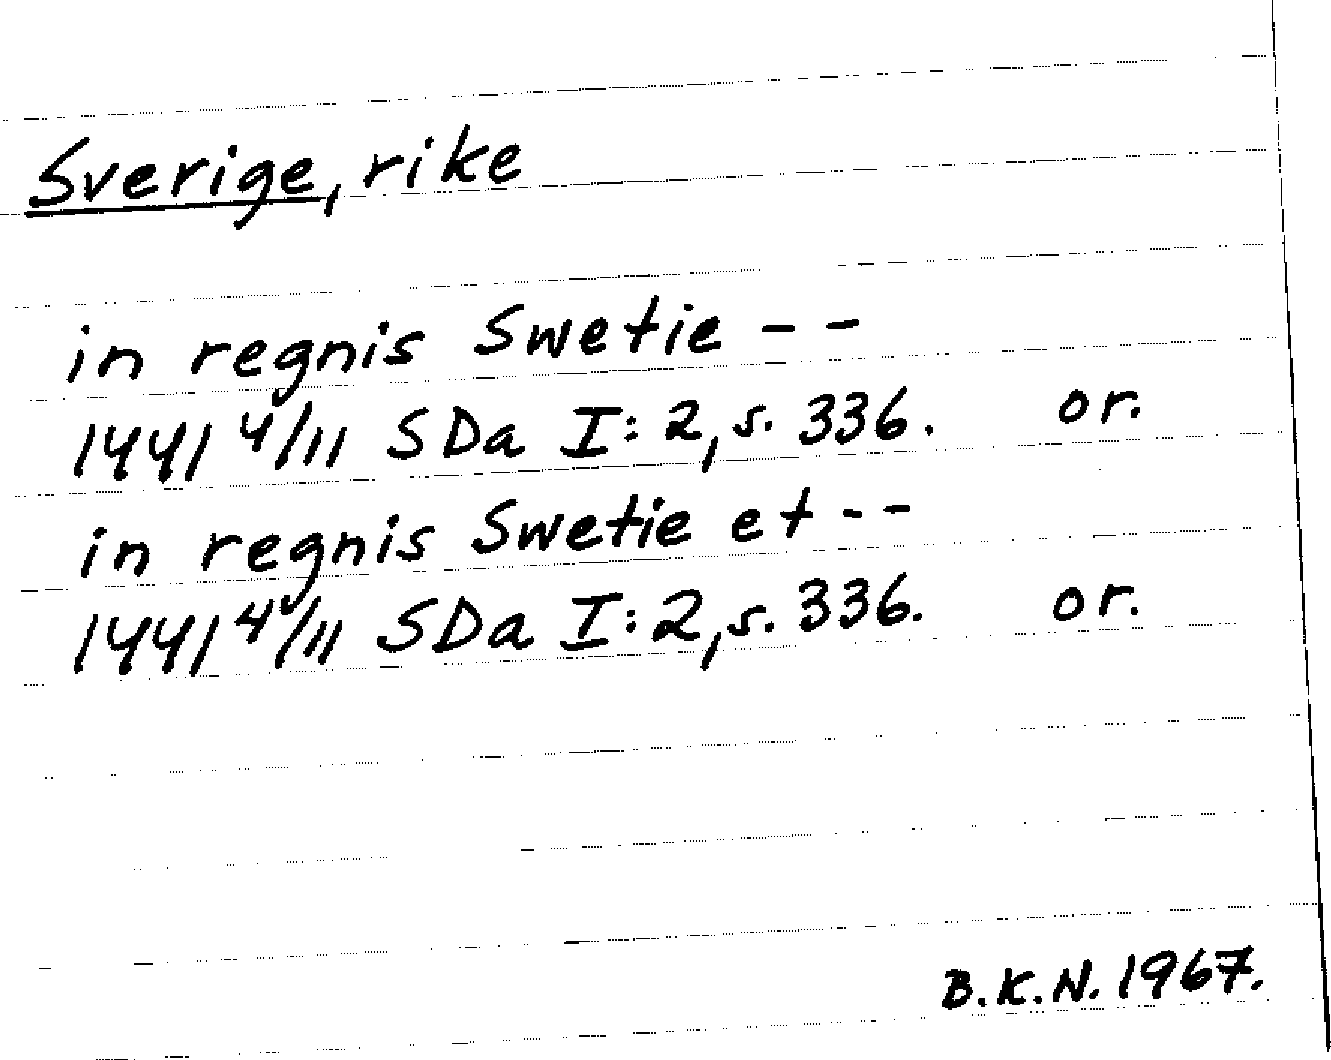 Sverige, rike
in regnis Swetie - -
1441 4/11 SDa I:2, s. 336. or.
in regnis Swetie et - -
1441 4/11 SDa I:2, s. 336. or.
B.K.N. 1967.